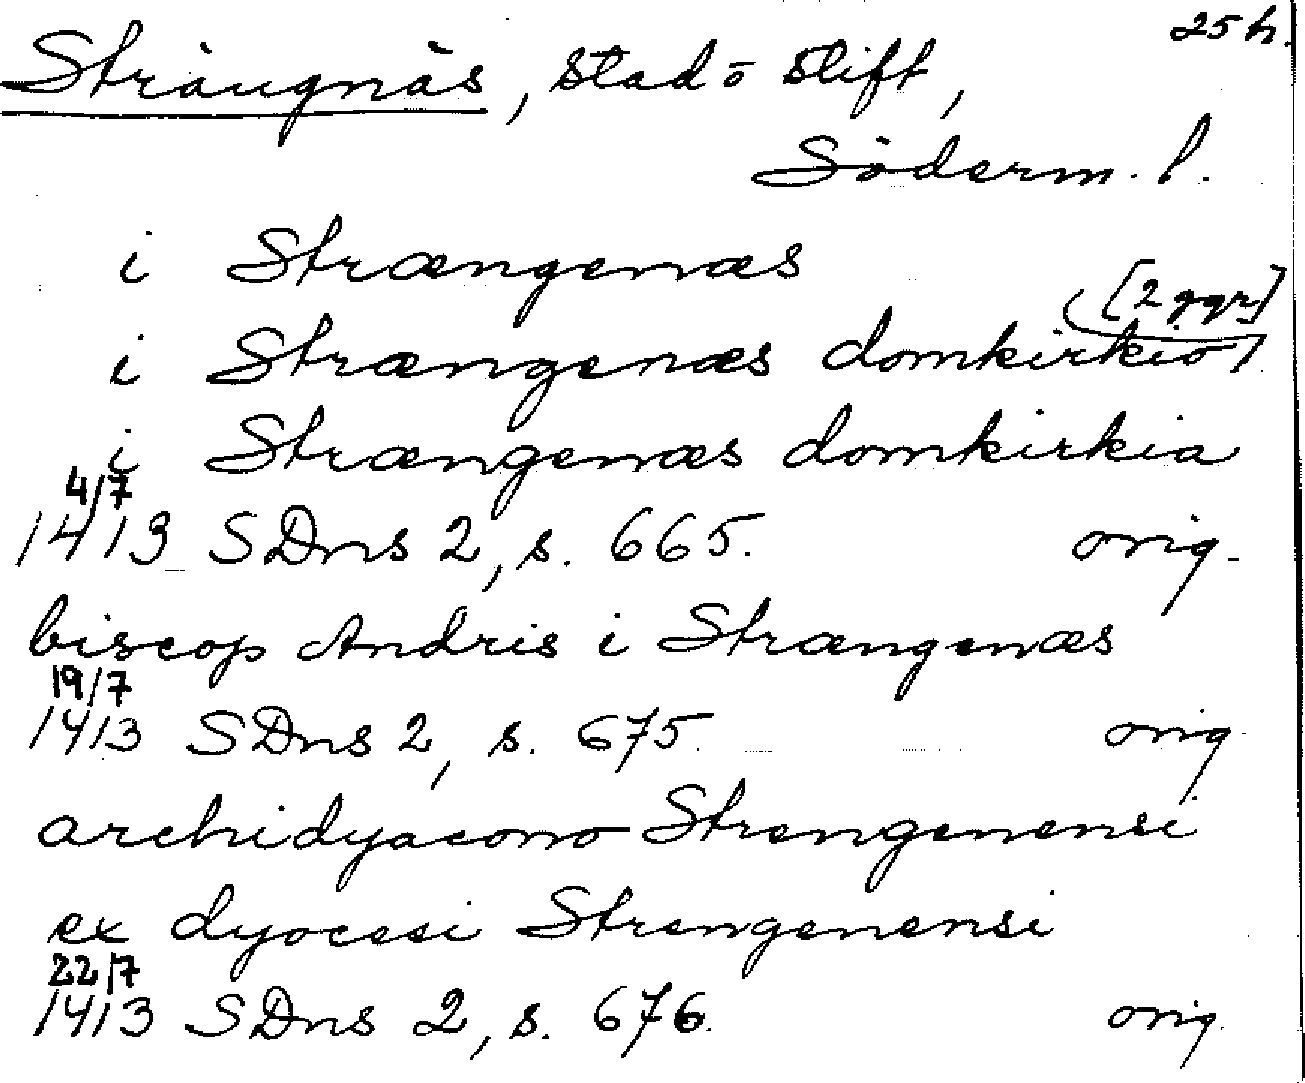 25 h.
Strängnäs, stad o stift,
Söderm. l.
i Strængenæs
[2 ggr]
i Strængenæs domkirkio
i Strængenæs domkirkia
4/7
1413 SDns 2, s. 665. orig.
biscop Andris i Strængenæs
19/7
1413 SDns 2, s. 675. orig
archidyacono Strengenensi
ex dyocesi Strengenensi
22/7
1413 SDns 2, s. 676. orig.